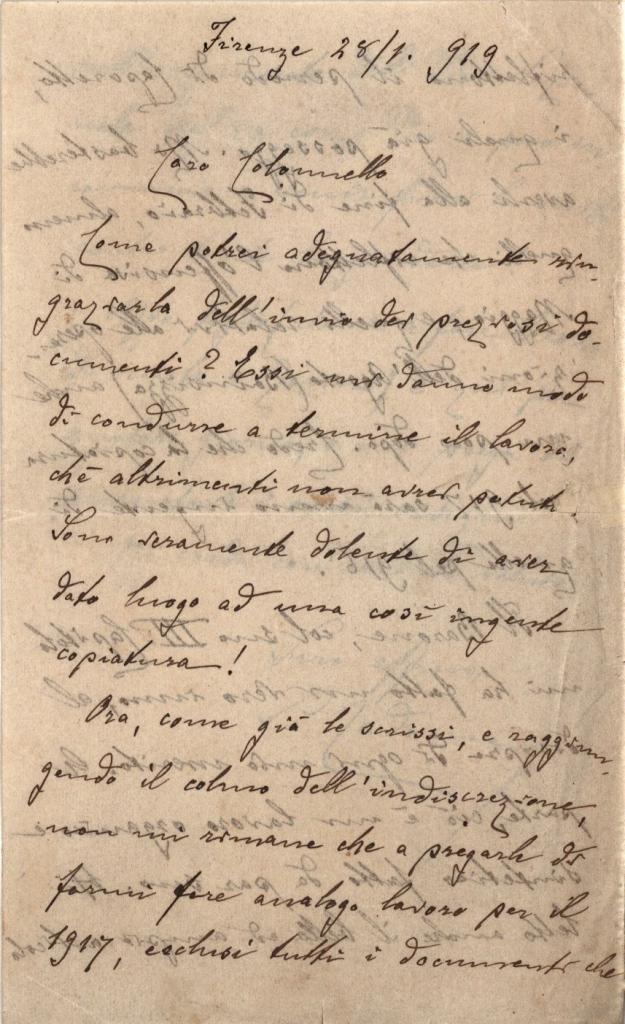 Firenze 28/1. 919
Caro Colonnello
Come potrei adeguatamente rin-
graziarla dell'invio dei preziosi do-
cumenti? Essi mi danno modo
di condurre a termine il lavoro,
chè altrimenti non avrei potuto.
Sono veramente dolente di aver
dato luogo ad una così ingente
copiatura!
Ora, come già le scrissi, e raggiun-
gendo il colmo dell'indiscrezione,
non mi rimane che a pregarla di
farmi fare analogo lavoro per il
1917, esclusi tutti i documenti che